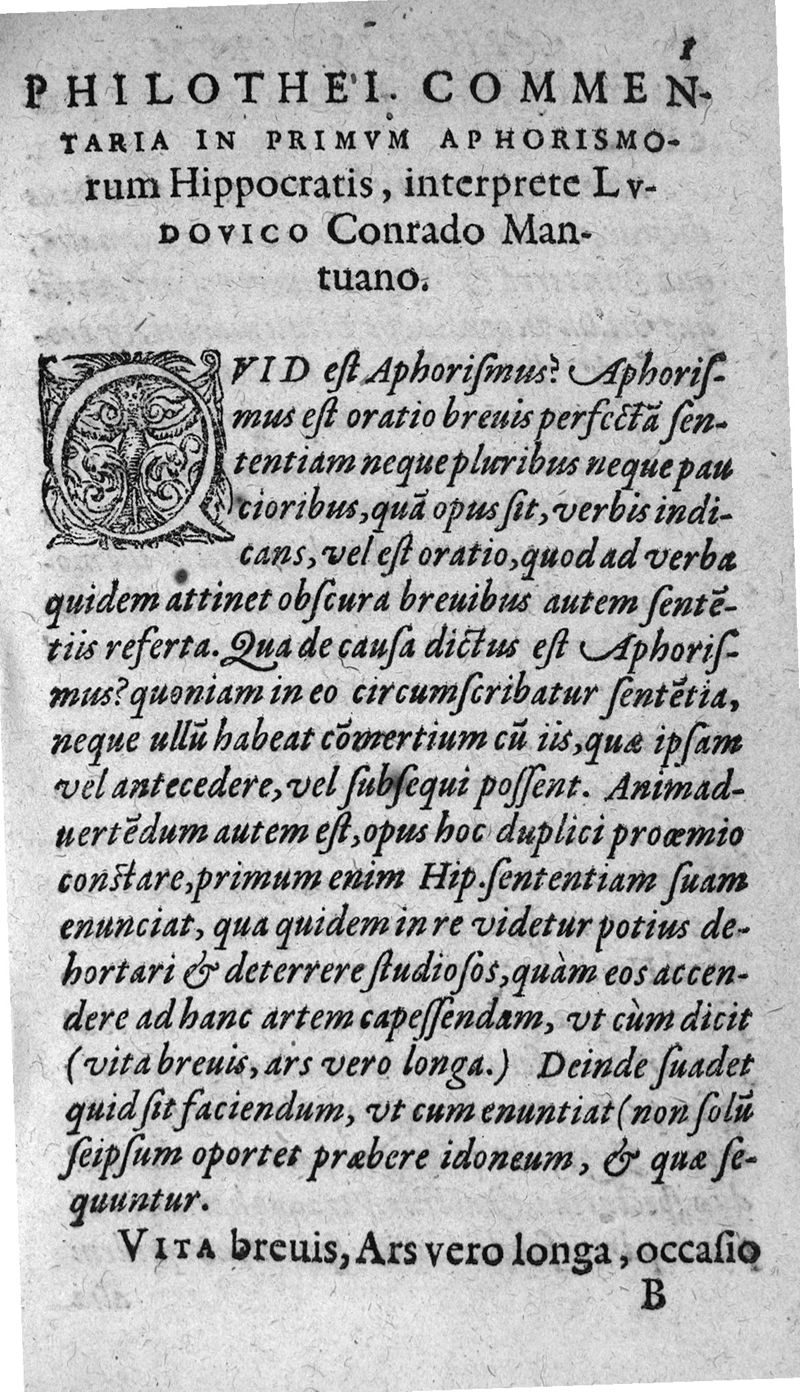 1
PHILOTHEI. COMMEN-
TARIA IN PRIMVM APHORISMO-
rum Hippocratis, interprete LV-
DOVICO Conrado Man-
tuano.
QVID est Aphoriſmus? Aphoriſ-
mus est oratio breuis perfectā ſen-
tentiam neque pluribus neque pau
cioribus, quā opus ſit, verbis indi-
cans, vel est oratio, quod ad verba
quidem attinet obſcura breuibus autem ſentē-
tiis referta. Qua de cauſa dictus est Aphoriſ-
mus? quoniam in eo circumſcribatur ſentētia,
neque ullū habeat cōmertium cū iis, quæ ipſam
vel antecedere, vel ſubſequi poſſent. Animad-
uertēdum autem est, opus hoc duplici proœmio
constare, primum enim Hip. ſententiam ſuam
enunciat, qua quidem in re videtur potius de-
hortari & deterrere ſtudioſos, quàm eos accen-
dere ad hanc artem capeſſendam, vt cùm dicit
(vita breuis, ars vero longa.) Deinde ſuadet
quid ſit faciendum, vt cum enuntiat (non ſolū
ſeipſum oportet præbere idoneum, & quæ ſe-
quuntur.
VITA breuis, Ars vero longa, occaſio
B